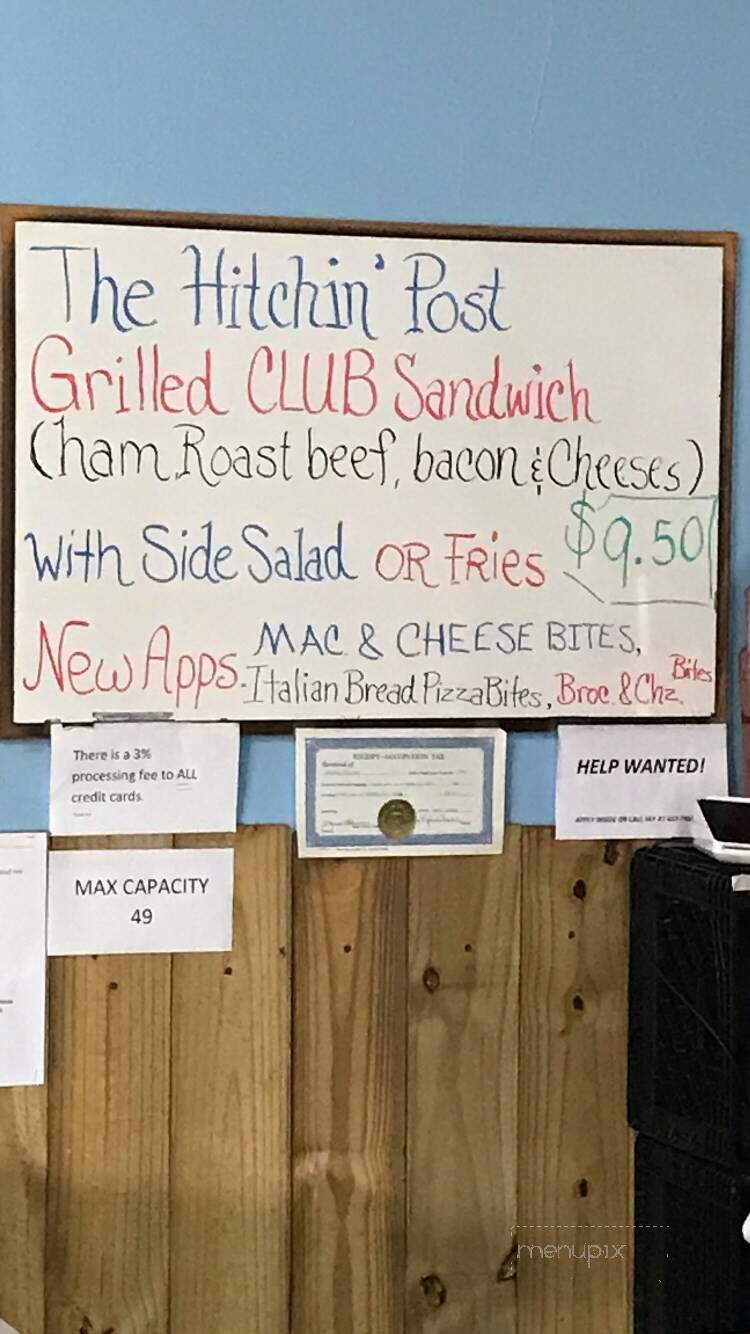 The Hitchin' Post
Grilled CLUB Sandwich
(ham Roast beef, bacon & Cheeses)
With Side Salad OR Fries $9.50
New Apps. MAC & CHEESE BITES,
Italian Bread Pizza Bites, Broc. & Chz. Bites
There is a 3%
processing fee to ALL
credit cards.
RECEIPT-OCCUPATION TAX
HELP WANTED!
MAX CAPACITY
49
menupix